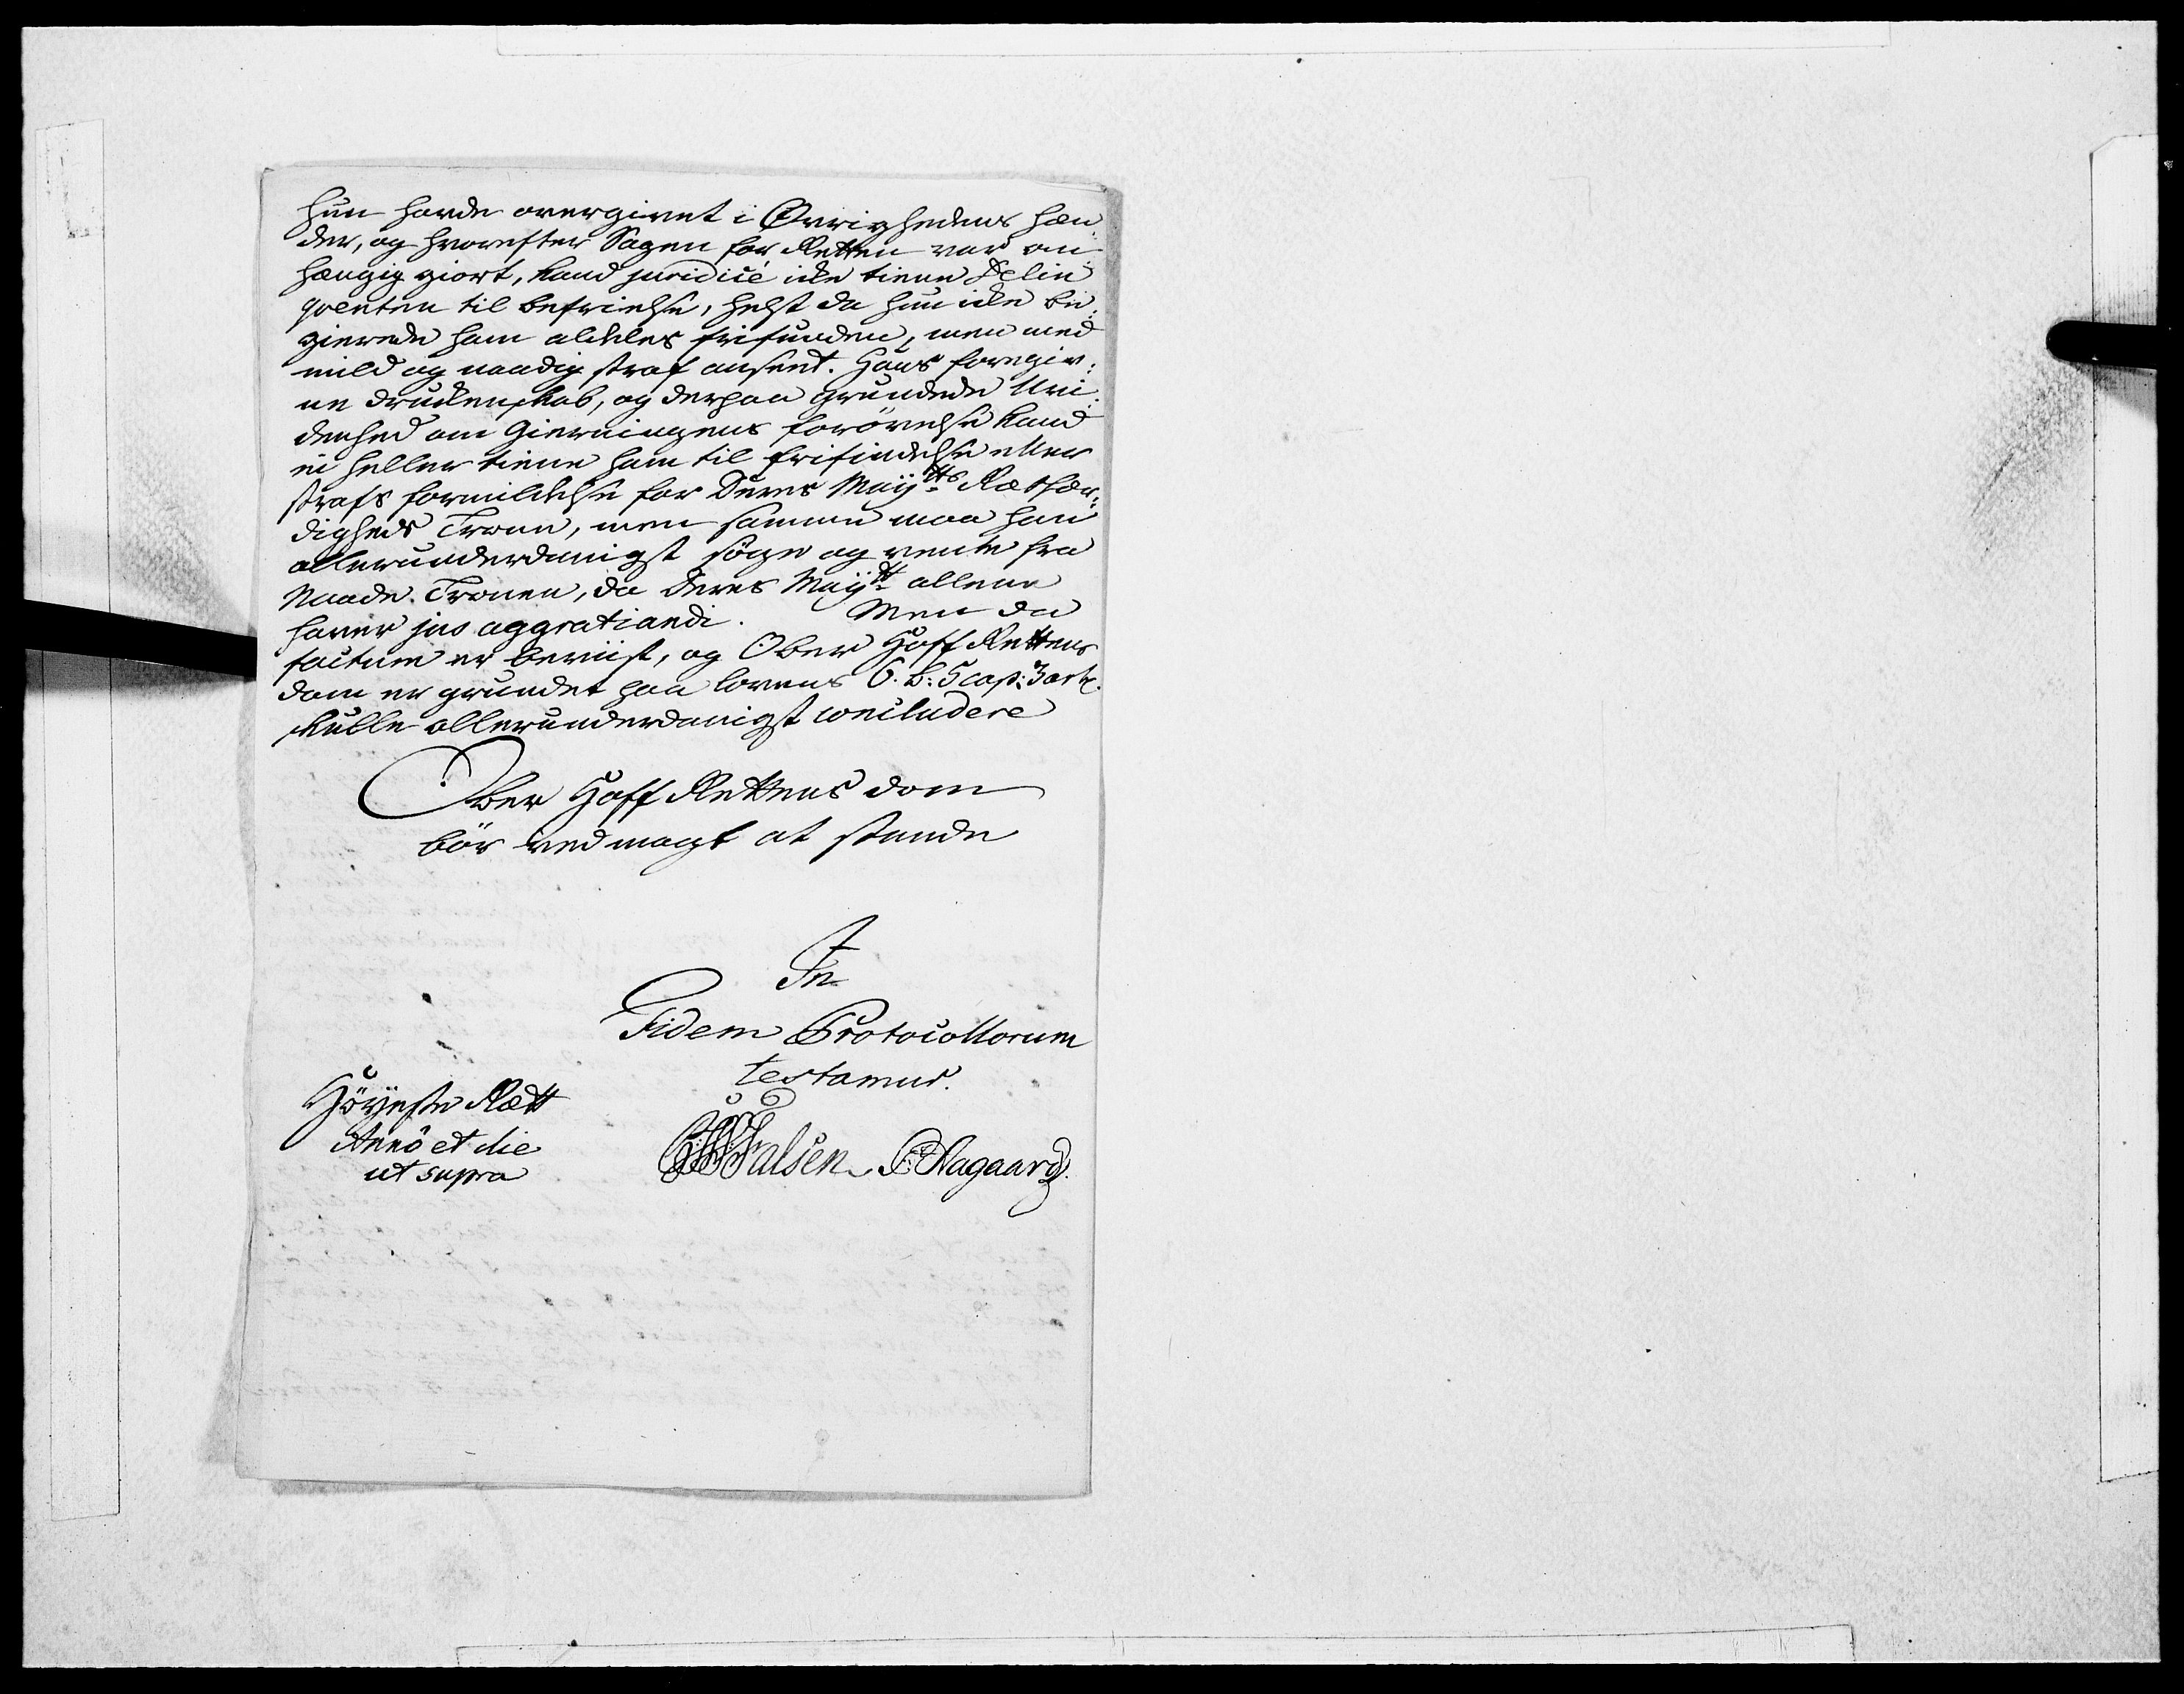 hun havde overgivet i Øvrighedens hæn:
der, og hvorefter Sagen for Retten var an
hængig giort, kand juridicè icke tiene Delin
qventen til befrielse, helst da hun icke be:
gierede ham aldeles frifunden, men med
mild og naadig straf anseet. Hans foregiv:
ne druckenskab, og derpaa grundede Uvi:
denhed om Gierningens forövelse kand
ei heller tiene ham til frifindelse eller
strafs formildelse for Deres Mayts Rætfær:
digheds Trone, men samme maa han
allerunderdanigst söge og vente fra
Naade Tronen, da Deres Mayt allene
haver jus aggratiandi. Men da
factum er beviist, og Ober Hoff Rettens
dom er grundet paa lovens 6. b: 5 cap: 3 art.
skulle allerunderdanigst concludere
Ober Hoff Rettens dom
bör ved magt at stande
In
Fidem Protocollorum
testamur.
Höyeste Rætt
Anno et die
ut supra
Falsen Aagaard